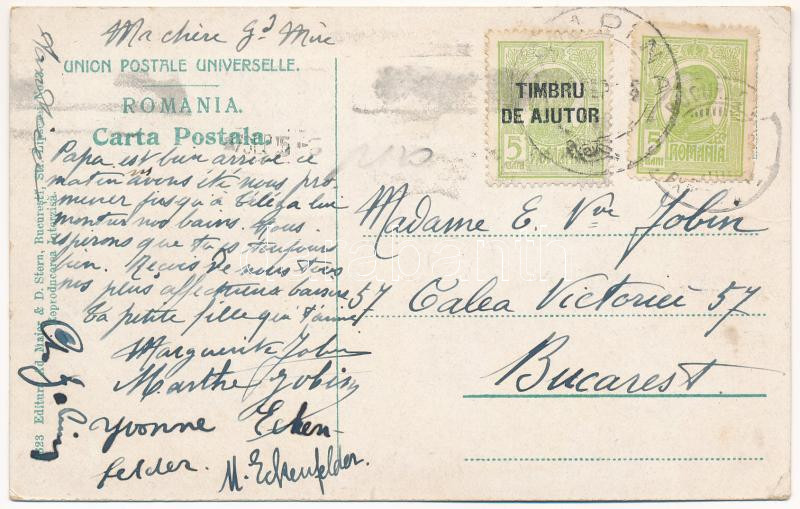 Ma chère Gd Mère
UNION POSTALE UNIVERSELLE.
ROMANIA.
Carta Postala.
Papa est bien arrivé ce
matin nous avons été nous pro
mener jusqu'à Teléga lui
montrer nos bains. Nous
espérons que tu vas toujours
bien. Reçois de nous tous
nos plus affectueux baisers
Ta petite fille qui t'aime
Marguerite Jobin
Marthe Jobin
Yvonne Ecken-
felder. M. Eckenfelder.
A. Jobin
TIMBRU
DE AJUTOR
5
5
BANI
ROMANIA
Madame E. Vve Jobin
57 Calea Victoriei 57
Bucarest.
323 Editura Ad. Maier & D. Stern, Bucuresti, Str.
Reproducerea interzisa.
darabanth